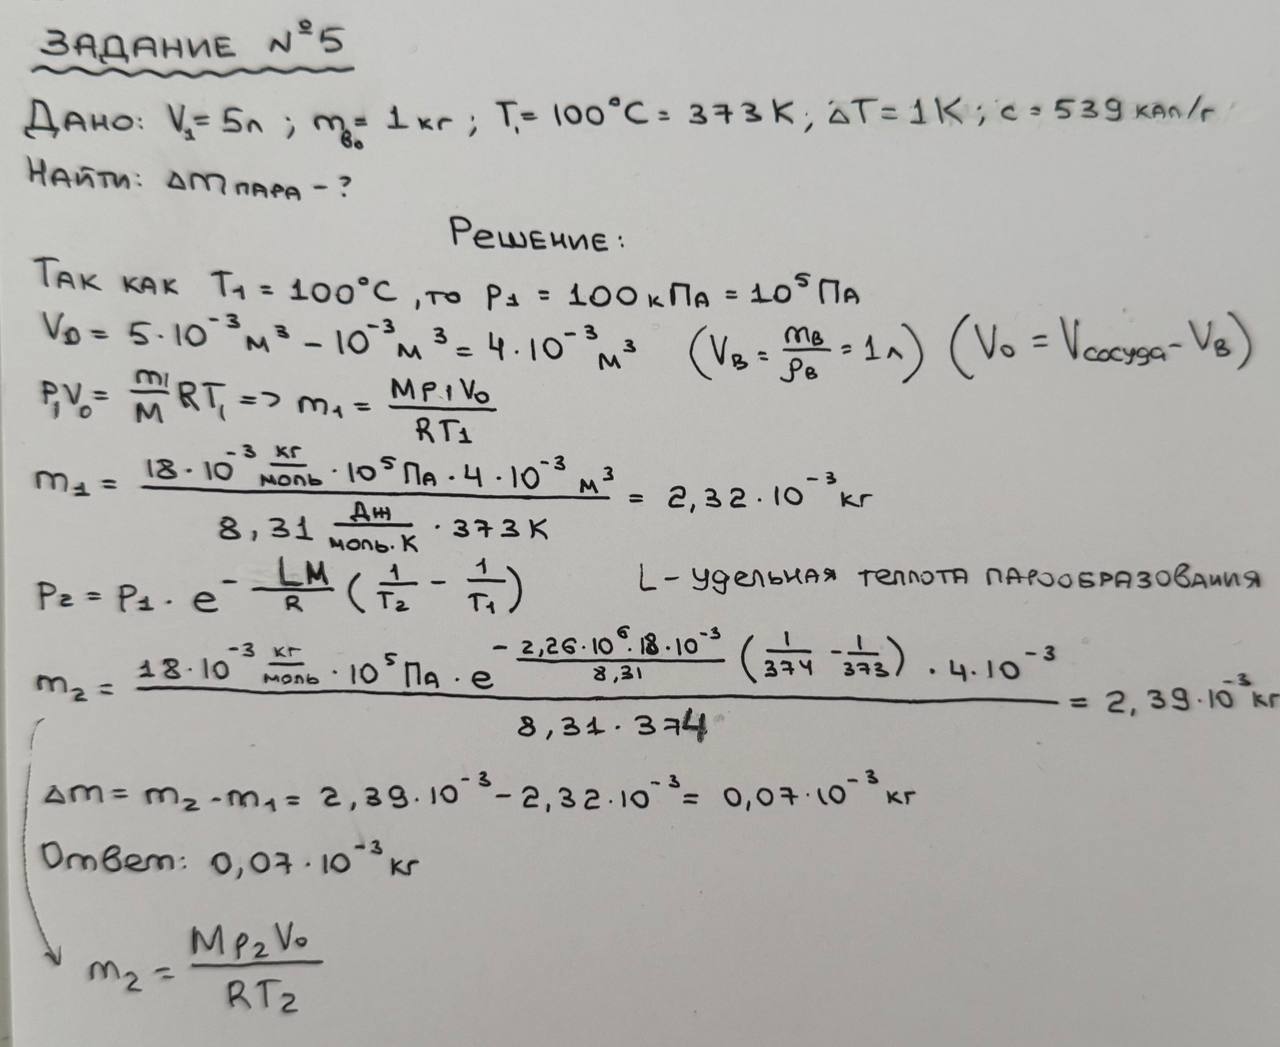 ЗАДАНИЕ №5
ДАНО: V₁= 5л ; m_во= 1 кг ; T₁= 100°C = 373 K ; ΔT = 1K ; c = 539 кал/г
НАЙТИ: Δm ПАРА - ?
РЕШЕНИЕ:
ТАК КАК T₁ = 100°C , то p₁ = 100 кПа = 10⁵ Па
V₀ = 5·10⁻³ м³ - 10⁻³ м³ = 4·10⁻³ м³ (V_в = m_в/ρ_в = 1л) (V₀ = V_сосуда - V_в)
P₁V₀ = m₁/M RT₁ => m₁ = Mp₁V₀/RT₁
m₁ = (18·10⁻³ кг/моль · 10⁵ Па · 4·10⁻³ м³)/(8,31 Дж/моль·К · 373 К) = 2,32·10⁻³ кг
p₂ = p₁ · e^(- LM/R (1/T₂ - 1/T₁)) L - удельная теплота парообразования
m₂ = (18·10⁻³ кг/моль · 10⁵ Па · e^(- 2,26·10⁶·18·10⁻³/8,31 (1/374 - 1/373)) · 4·10⁻³)/(8,31 · 374) = 2,39·10⁻³ кг
Δm = m₂ - m₁ = 2,39·10⁻³ - 2,32·10⁻³ = 0,07·10⁻³ кг
Ответ: 0,07·10⁻³ кг
m₂ = Mp₂V₀/RT₂